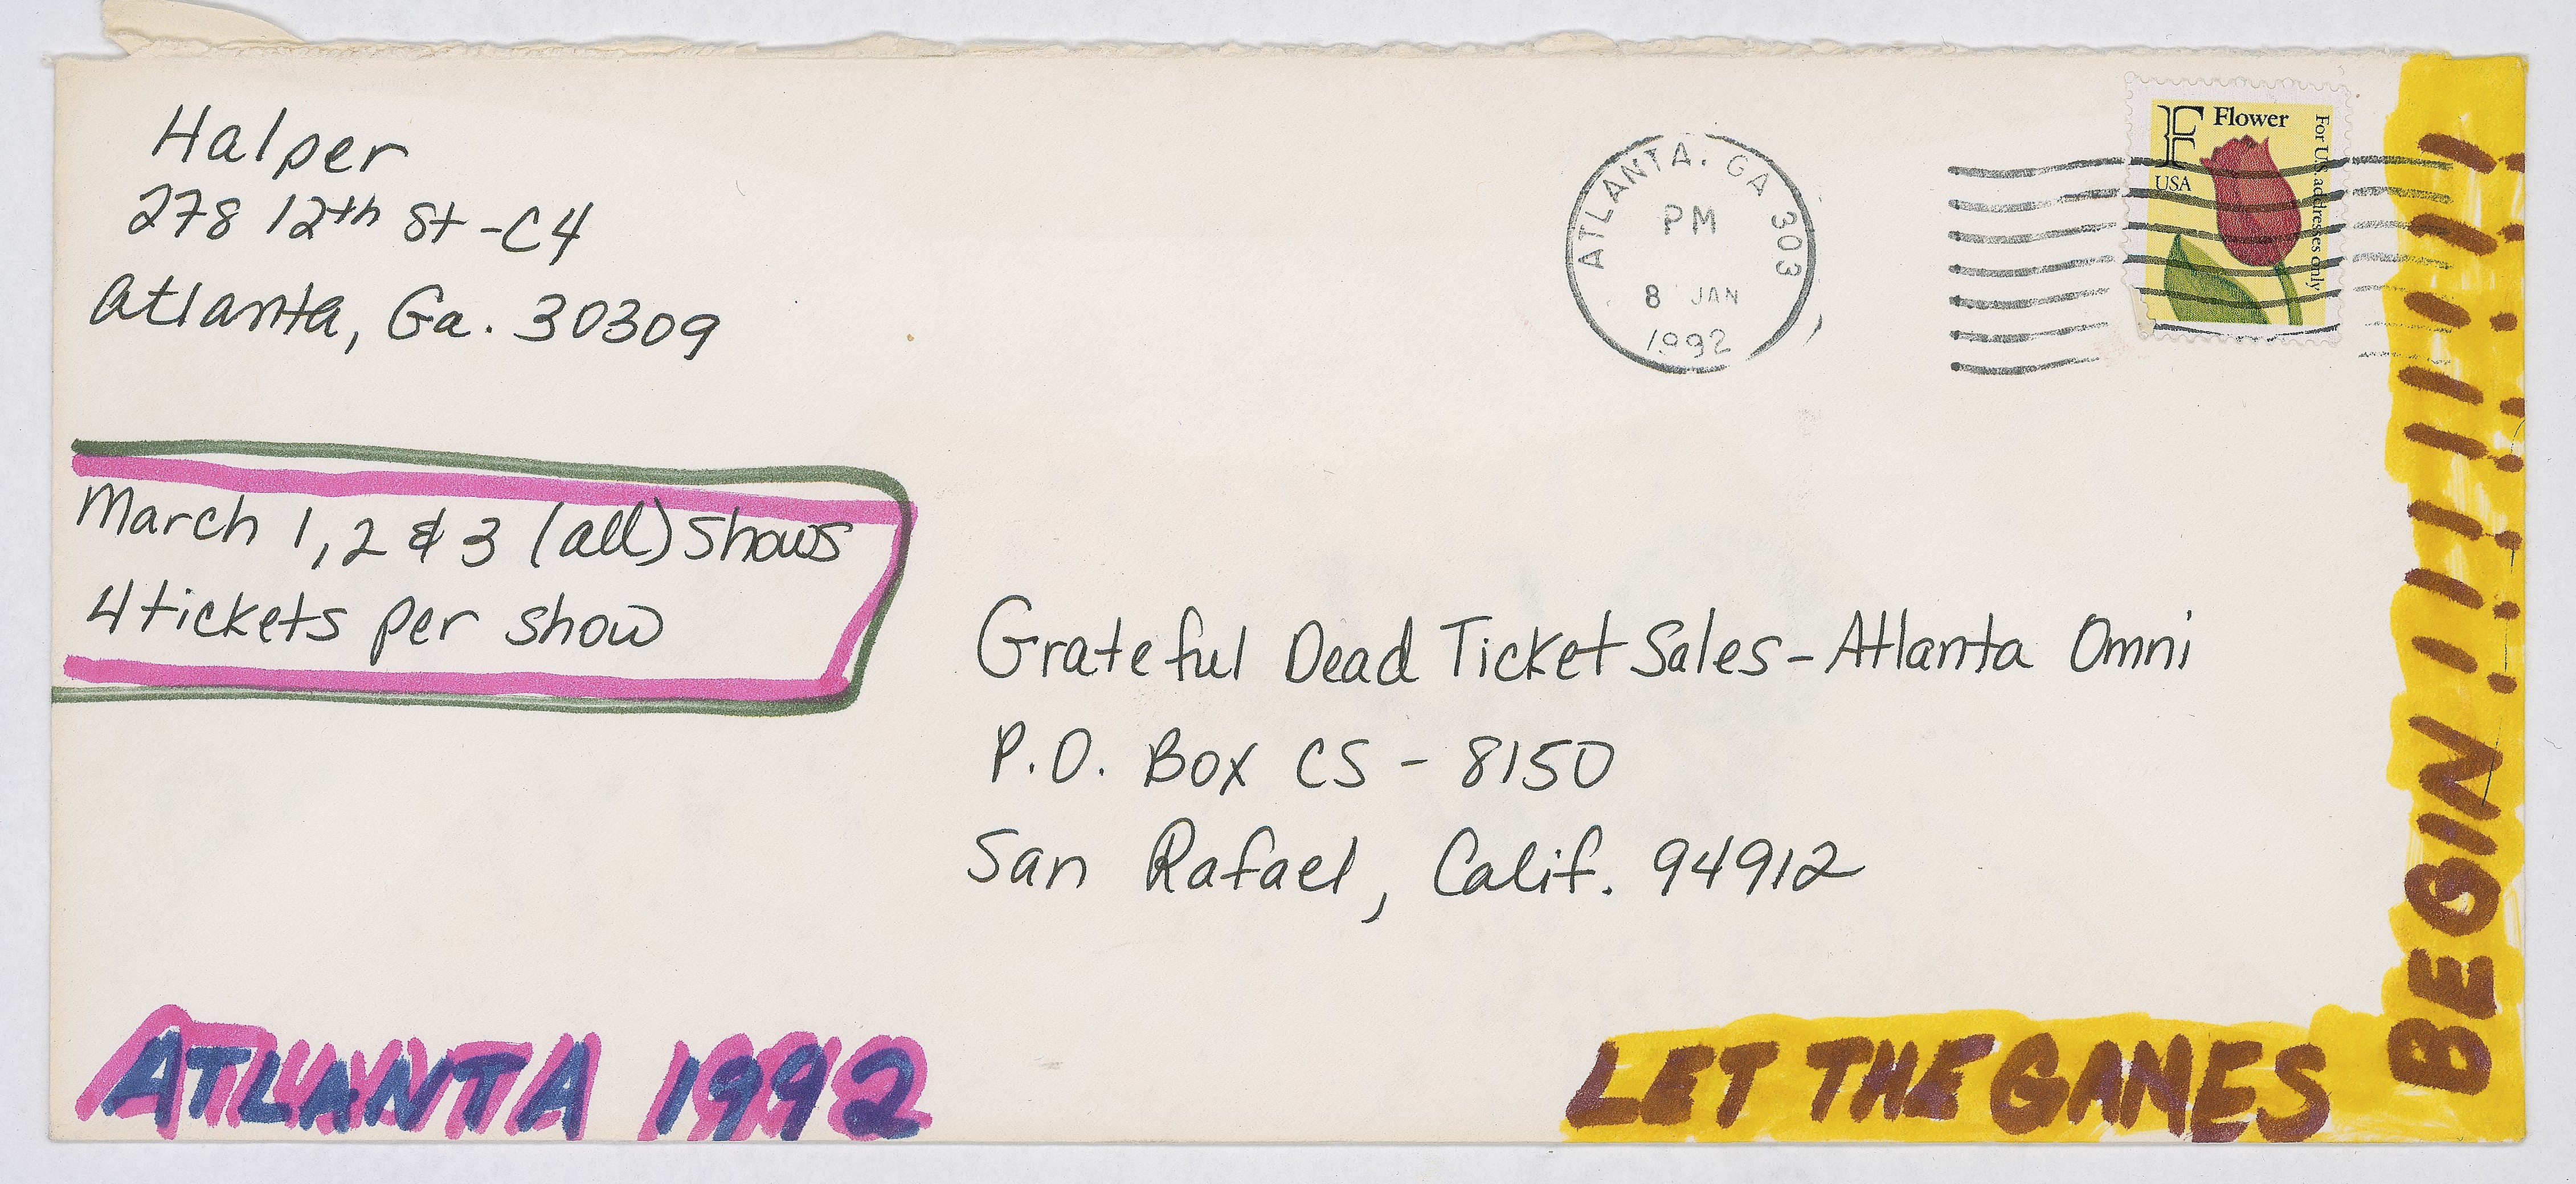 Halper
278 12th St - C4
Atlanta, Ga. 30309
ATLANTA, GA 303
PM
8 JAN
1992
F Flower
USA
For U.S. addresses only
March 1, 2 & 3 (all) shows
4 tickets per show
Grateful Dead Ticket Sales - Atlanta Omni
P.O. Box CS - 8150
San Rafael, Calif. 94912
ATLANTA 1992
LET THE GAMES
BEGIN !!!!!!!!